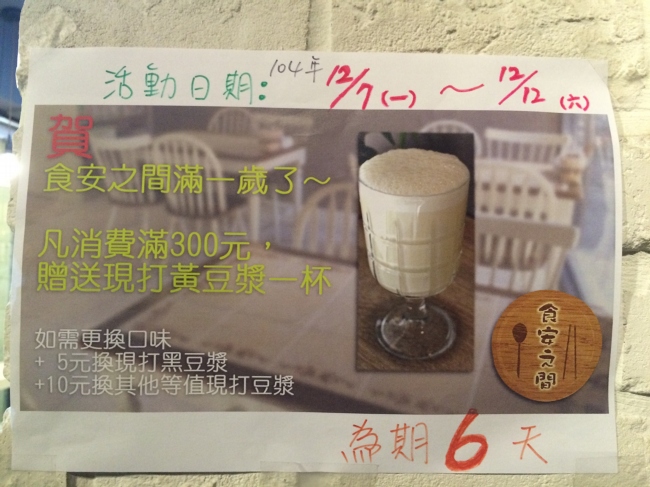 活動日期: 104年 12/7(一) ~ 12/12(六)
賀
食安之間滿一歲了~
凡消費滿300元，
贈送現打黃豆漿一杯
如需更換口味
+ 5元換現打黑豆漿
+10元換其他等值現打豆漿
食安之間
為期6天